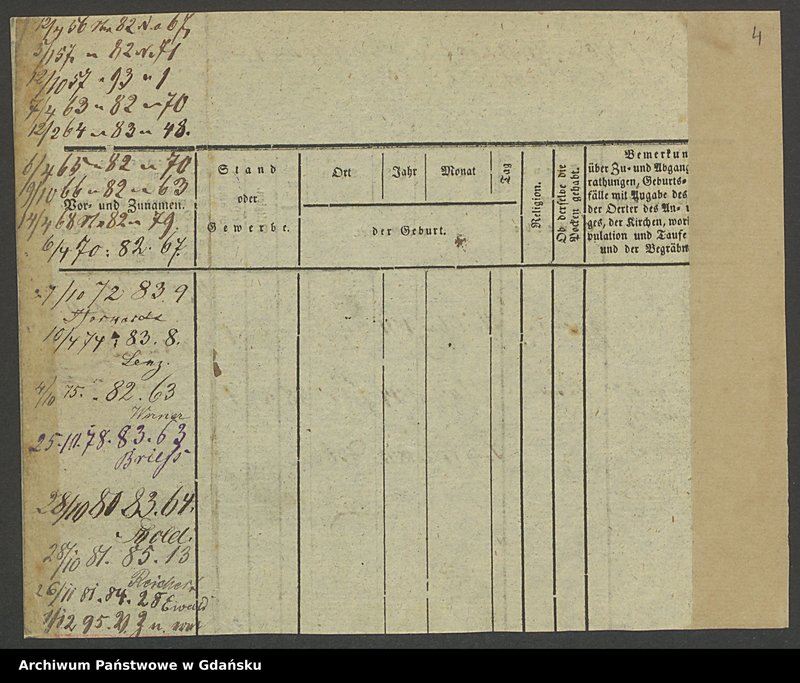 4
12/4 56 No 82 No 67
5/1 57 " 82 No 71
12/10 57 " 93 " 1
7/4 63 " 82 " 70
12/2 64 " 83 " 48.
6/4 65 " 82 " 70
19/10 66 " 82 " 63
14/4 68 No 82 " 79
6/4 70 : 82 . 67.
Vor- und Zunamen.
Stand
oder
Gewerbe.
Ort Jahr Monat Tag
der Geburt.
Religion.
Ob derselbe die
Pocken gehabt.
Bemerkun
über Zu- und Abgang
rathungen, Geburts-
fälle mit Angabe des
der Oerter des An-
ges, der Kirchen, wori
pulation und Taufe
und der Begräbn
7/10 72 83 9
10/4 74 83. 8.
Lenz.
4/10 75. 82. 63
Werner
25.11.78. 83. 63
28/10 80 83. 64.
28/10 81. 85. 13
Reichert
26/11 81. 84. 28
Ewald
1/12 95.
Archiwum Państwowe w Gdańsku